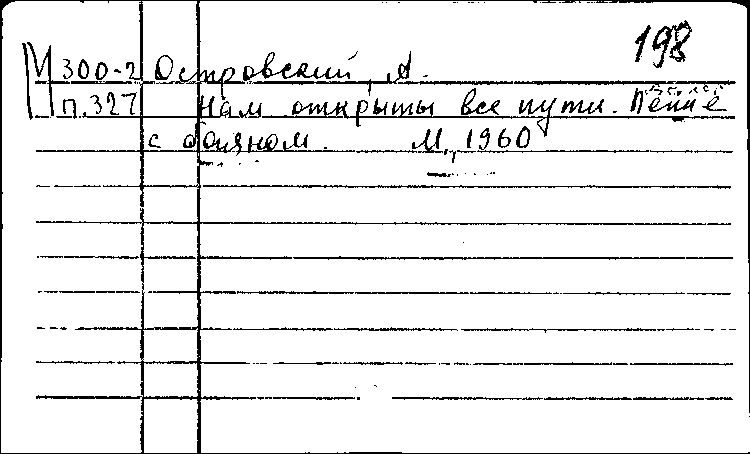 198
М 300-2 Островский, А.
п. 327 Нам открыты все пути. Пение
с баяном. М., 1960